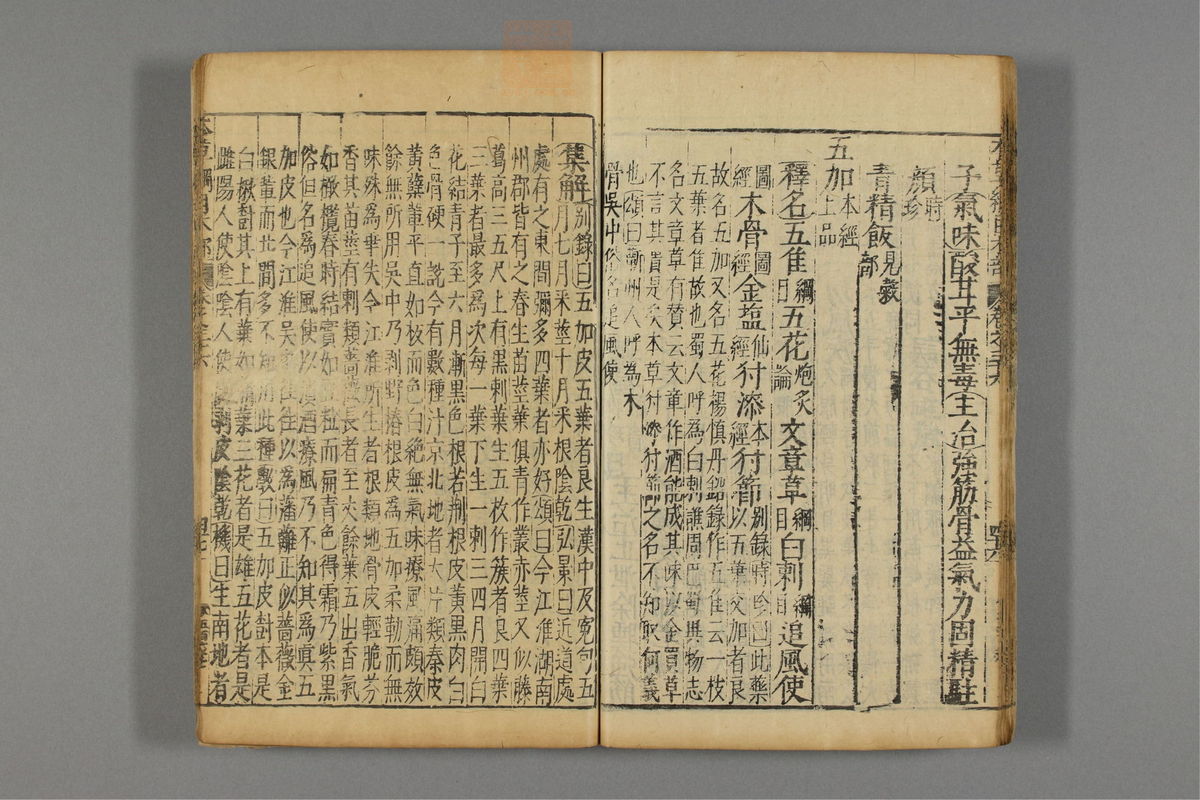 子氣味酸甘平無毒主治強筋骨益氣力固精駐
顏時珍
青精飯見穀部
五加本經上品
釋名五隹綱目五花炮炙論文章草綱目白刺綱目追風使
圖經木骨圖經金鹽仙經犲漆本經犲節別錄時珍曰此藥以五葉交加者良
故名五加又名五花楊慎丹鉛錄作五隹云一枝
五葉者隹故也蜀人呼為白刺譙周巴蜀異物志
名文章草有贊云文章作酒能成其味以金買草
不言其貴是矣本草犲漆犲節之名不知取何義
也頌曰蘄州人呼為木
骨吳中俗名追風使
集解別錄曰五加皮五葉者良生漢中及冤句五
月七月采莖十月采根陰乾弘景曰近道處
處有之東間彌多四葉者亦好頌曰今江淮湖南
州郡皆有之春生苗莖葉俱青作叢赤莖又似藤
蔓高三五尺上有黑刺葉生五枚作簇者良四葉
三葉者最多為次每一葉下生一刺三四月開白
花結青子至六月漸黑色根若荆根皮黃黑肉白
色骨硬一說今有數種汁京北地者大片類秦皮
黃蘗輩平直如板而色白絕無氣味療風痛頗效
餘無所用吳中乃剥野椿根皮為五加柔韌而無
味殊為乖失今江淮所生者根類地骨皮輕脆芬
香其苗莖有刺類薔薇長者至丈餘葉五出香氣
如橄欖春時結實如豆粒而扁青色得霜乃紫黑
俗但名為追風使以漬酒療風乃不知其為真五
加皮也今江淮吳中往往以為藩籬正似薔薇金
銀輩而北間多不知用此種斆曰五加皮樹本是
白楸樹其上有葉如蒲葉三花者是雄五花者是
雌陽人使陰陰人使陽剥皮陰乾機曰生南地者